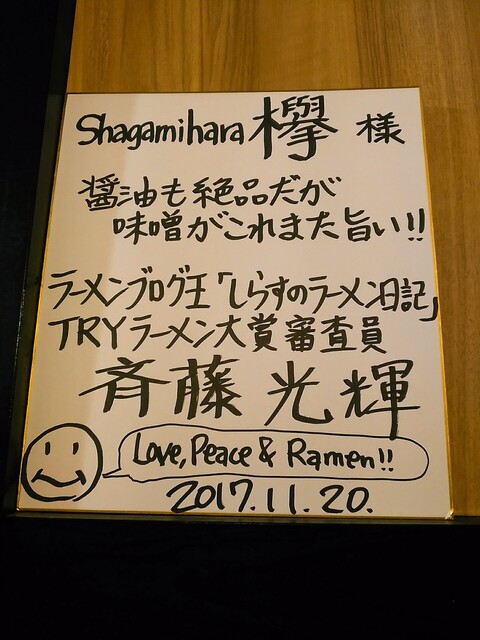 Shagamihara 欅 様
醤油も絶品だが
味噌がこれまた旨い!!
ラーメンブログ王「しらすのラーメン日記」
TRYラーメン大賞審査員
斉藤 光輝
Love, Peace & Ramen!!
2017.11.20.